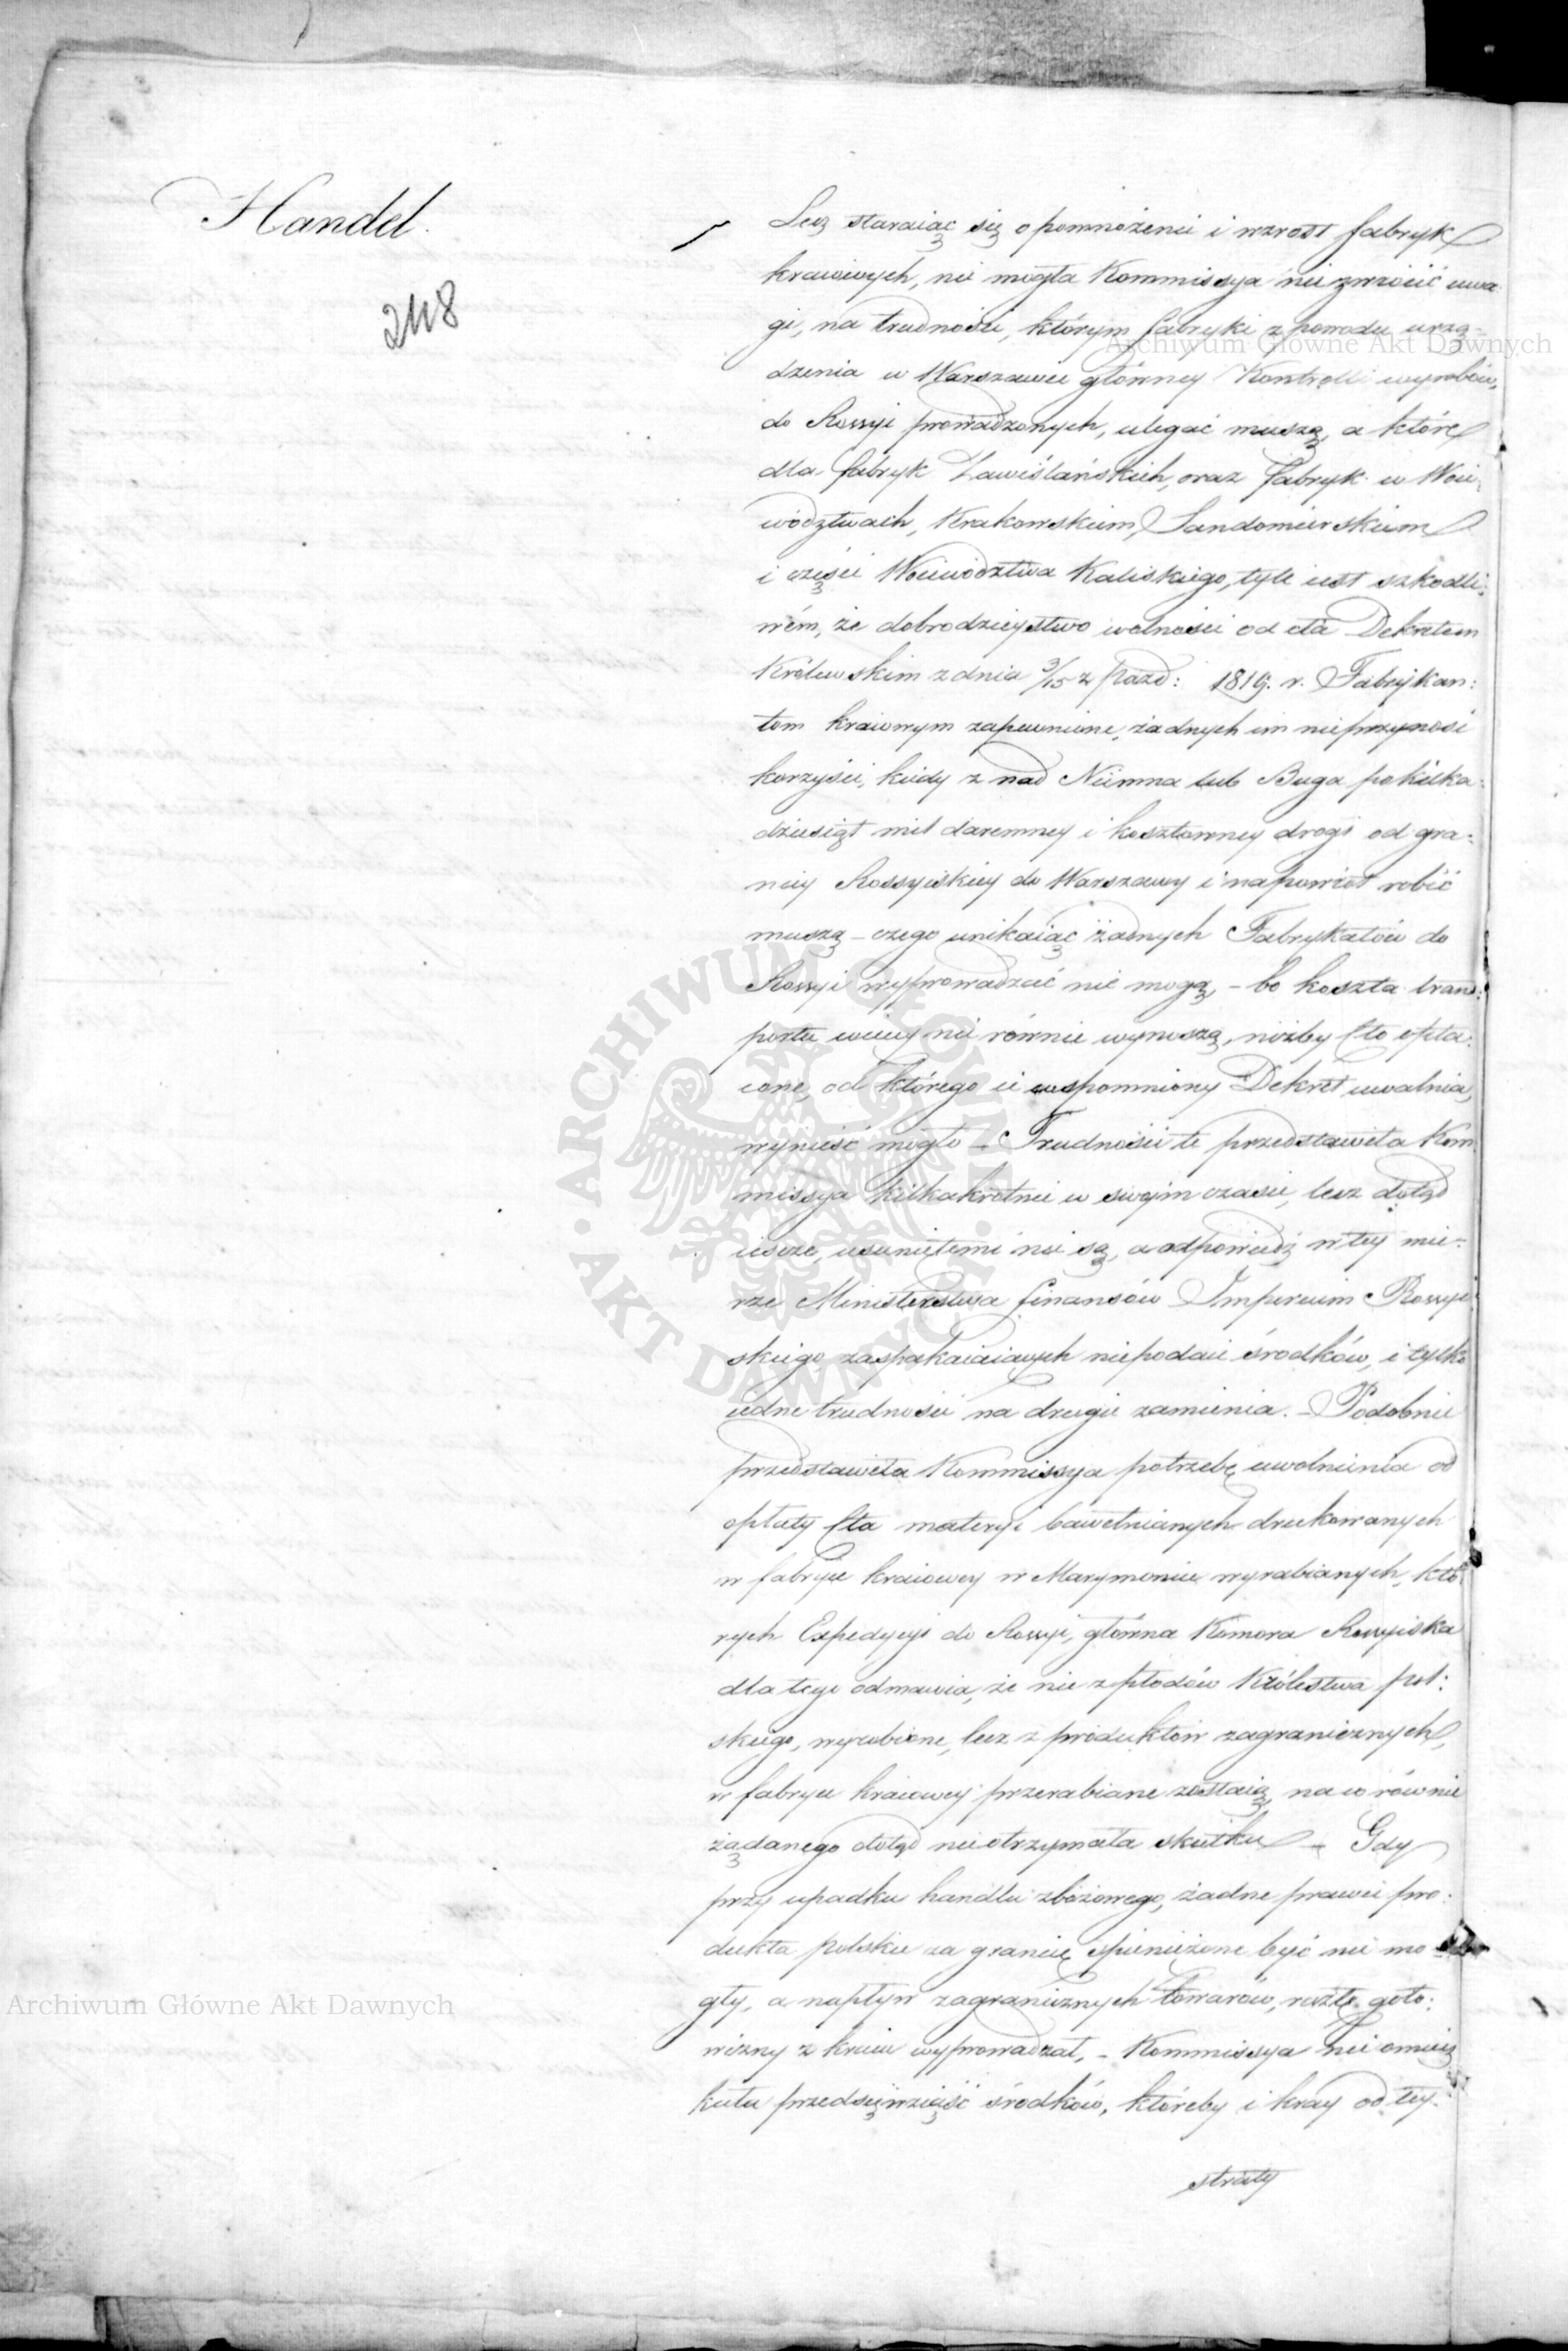 Handel.
248
Lecz staraiąc się o pomnożenie i wzrost fabryk
kraiowych, nie mogła Kommissya nie zwrócić uwa-
gi, na trudności, którym fabryki z powodu urzą-
dzenia w Warszawie główney Kontrolli wyrobów,
do Rossyi prowadzonych, ulegać muszą, a które
dla fabryk Zawiślańskich, oraz fabryk w Woie-
wództwach, Krakowskiem, Sandomierskiem
i części Woiewództwa Kaliskiego, tyle iest szkodli:
wém, że dobrodzieystwo wolności od cła Dekretem
Królewskim z dnia 3/15 z Pazd: 1819. r. Fabrykan:
tom kraiowym zapewnione, żadnych im nieprzynosi
korzyści, kiedy z nad Niemna lub Buga po kilka-
dziesiąt mil daremney i kosztowney drogi od gra:
nicy Rossyiskiey do Warszawy i napowrót robić
muszą – czego unikaiąc żadnych Fabrykatów do
Rossyi wyprowadzać nie mogą, – bo koszta trans:
portu więcey nie równie wynoszą, niżby cło opła:
cone, od którego ie wspomniony Dekret uwalnia,
wynieść mogło – Trudności te przedstawiła Kom
missya kilkakrotnie w swoim czasie, lecz dotąd
iescze, usuniętemi nie są, a odpowiedź w tey mie-
rze Ministerstwa finansów Imperium Rossyi
skiego, zaspakaiaiących niepodaie środków, i tylko
iedne trudności na drugie zamienia. – Podobnie
przedstawiła Kommissya potrzebę uwolnienia od
opłaty Cła materyi bawełnianych drukowanych
w fabryce kraiowey w Marymoncie wyrabianych, któ
rych Expedycyi do Rossyi, główna Komora Rossyiska
dla tego odmawia, że nie z płodów Królestwa pol:
skiego, wyrobione, lecz z produktów zagranicznych,
w fabryce kraiowey przerabiane zostaią, na co równie
żądanego dotąd nie otrzymała skutku – Gdy
przy upadku handlu zbożowego, żadne prawie pro:
dukta polskie za granicę spieniężone być nie mo
gły, a napływ zagranicznych towarów, resztę goto:
wizny z kraiu wyprowadzał, – Kommissya nie omiesz
kała przedsięwziąść środków, któreby i kray od tey
straty
Archiwum Główne Akt Dawnych
Archiwum Główne Akt Dawnych
ARCHIWUM GŁÓWNE • AKT DAWNYCH •